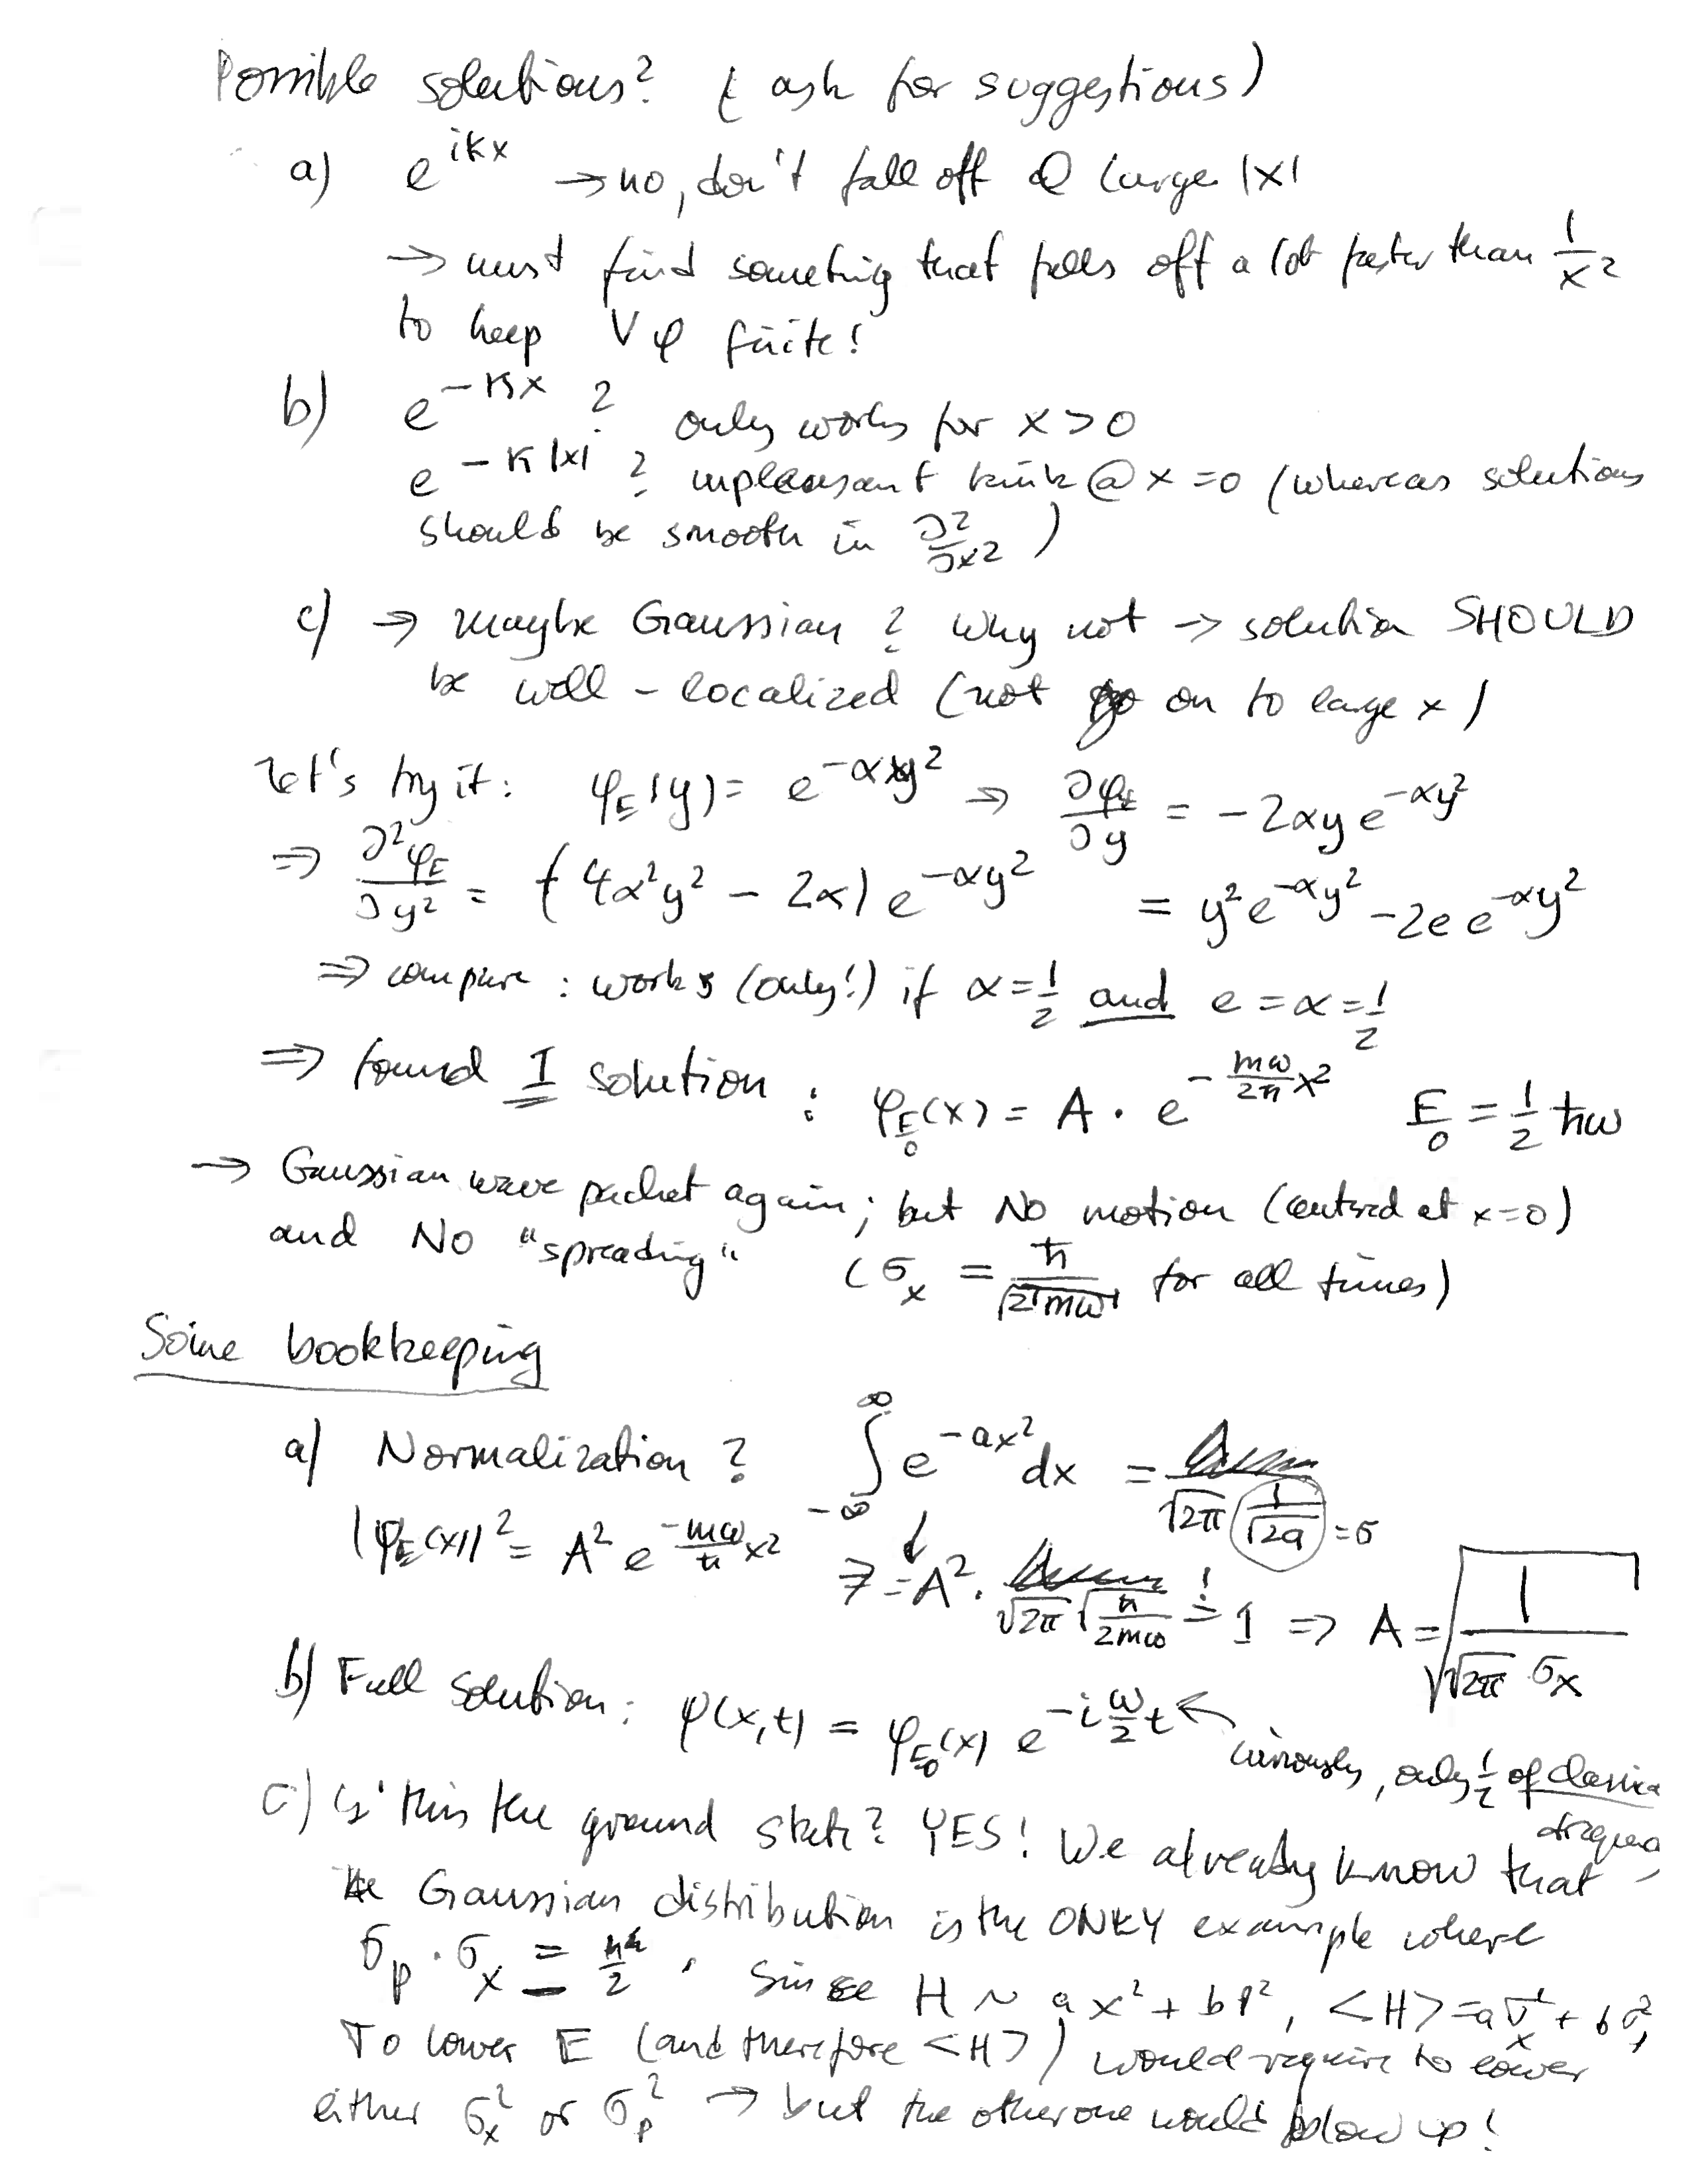 Possible solutions? ( ask for suggestions)
a) e^{ikx} → no, don't fall off @ large |x|
→ must find someting that falls off a lot faster than 1/x²
to keep Vφ finite!
b) e^{-κx} ? only works for x > 0
e^{-κ|x|} ? unpleasant kink @ x = 0 (whereas solutions
should be smooth in ∂²/∂x² )
c) → maybe Gaussian ? Why not → solution SHOULD
be well - localized (not go on to large x )
Let's try it: φ_E(y) = e^{-αy²} ⇒ ∂φ_E/∂y = -2αy e^{-αy²}
⇒ ∂²φ_E/∂y² = (4α²y² - 2α) e^{-αy²} = y²e^{-αy²} - 2e e^{-αy²}
⇒ compare : works (only!) if α = 1/2 and e = α = 1/2
⇒ found 1 solution : φ_{E_0}(x) = A · e^{-mω/2ħ x²} E_0 = 1/2 ħω
→ Gaussian wave packet again ; but NO motion (centered at x=0)
and NO "spreading" ( σ_x = ħ/√2 mω for all times)
Some bookkeeping
a) Normalization ? ∫_{-∞}^{∞} e^{-ax²} dx = √2π 1/√2a = σ
|φ_E(x)|² = A² e^{-mω/ħ x²} ⇒ = A² · √2π √ħ/2mω != 1 ⇒ A = √(1/√2π σ_x)
b) Full solution : φ(x,t) = φ_{E_0}(x) e^{-i ω/2 t} ← curiously, only 1/2 of classica
frequenc
c) Is this the ground state? YES! We already know that
the Gaussian distribution is the ONLY example where
σ_p · σ_x = ħ/2 . Since H ~ a x² + b p² , <H> = a σ_x² + b σ²
To lower E (and therefore <H>) would require to lower
either σ_x² or σ_p² → but the other one would blow up !